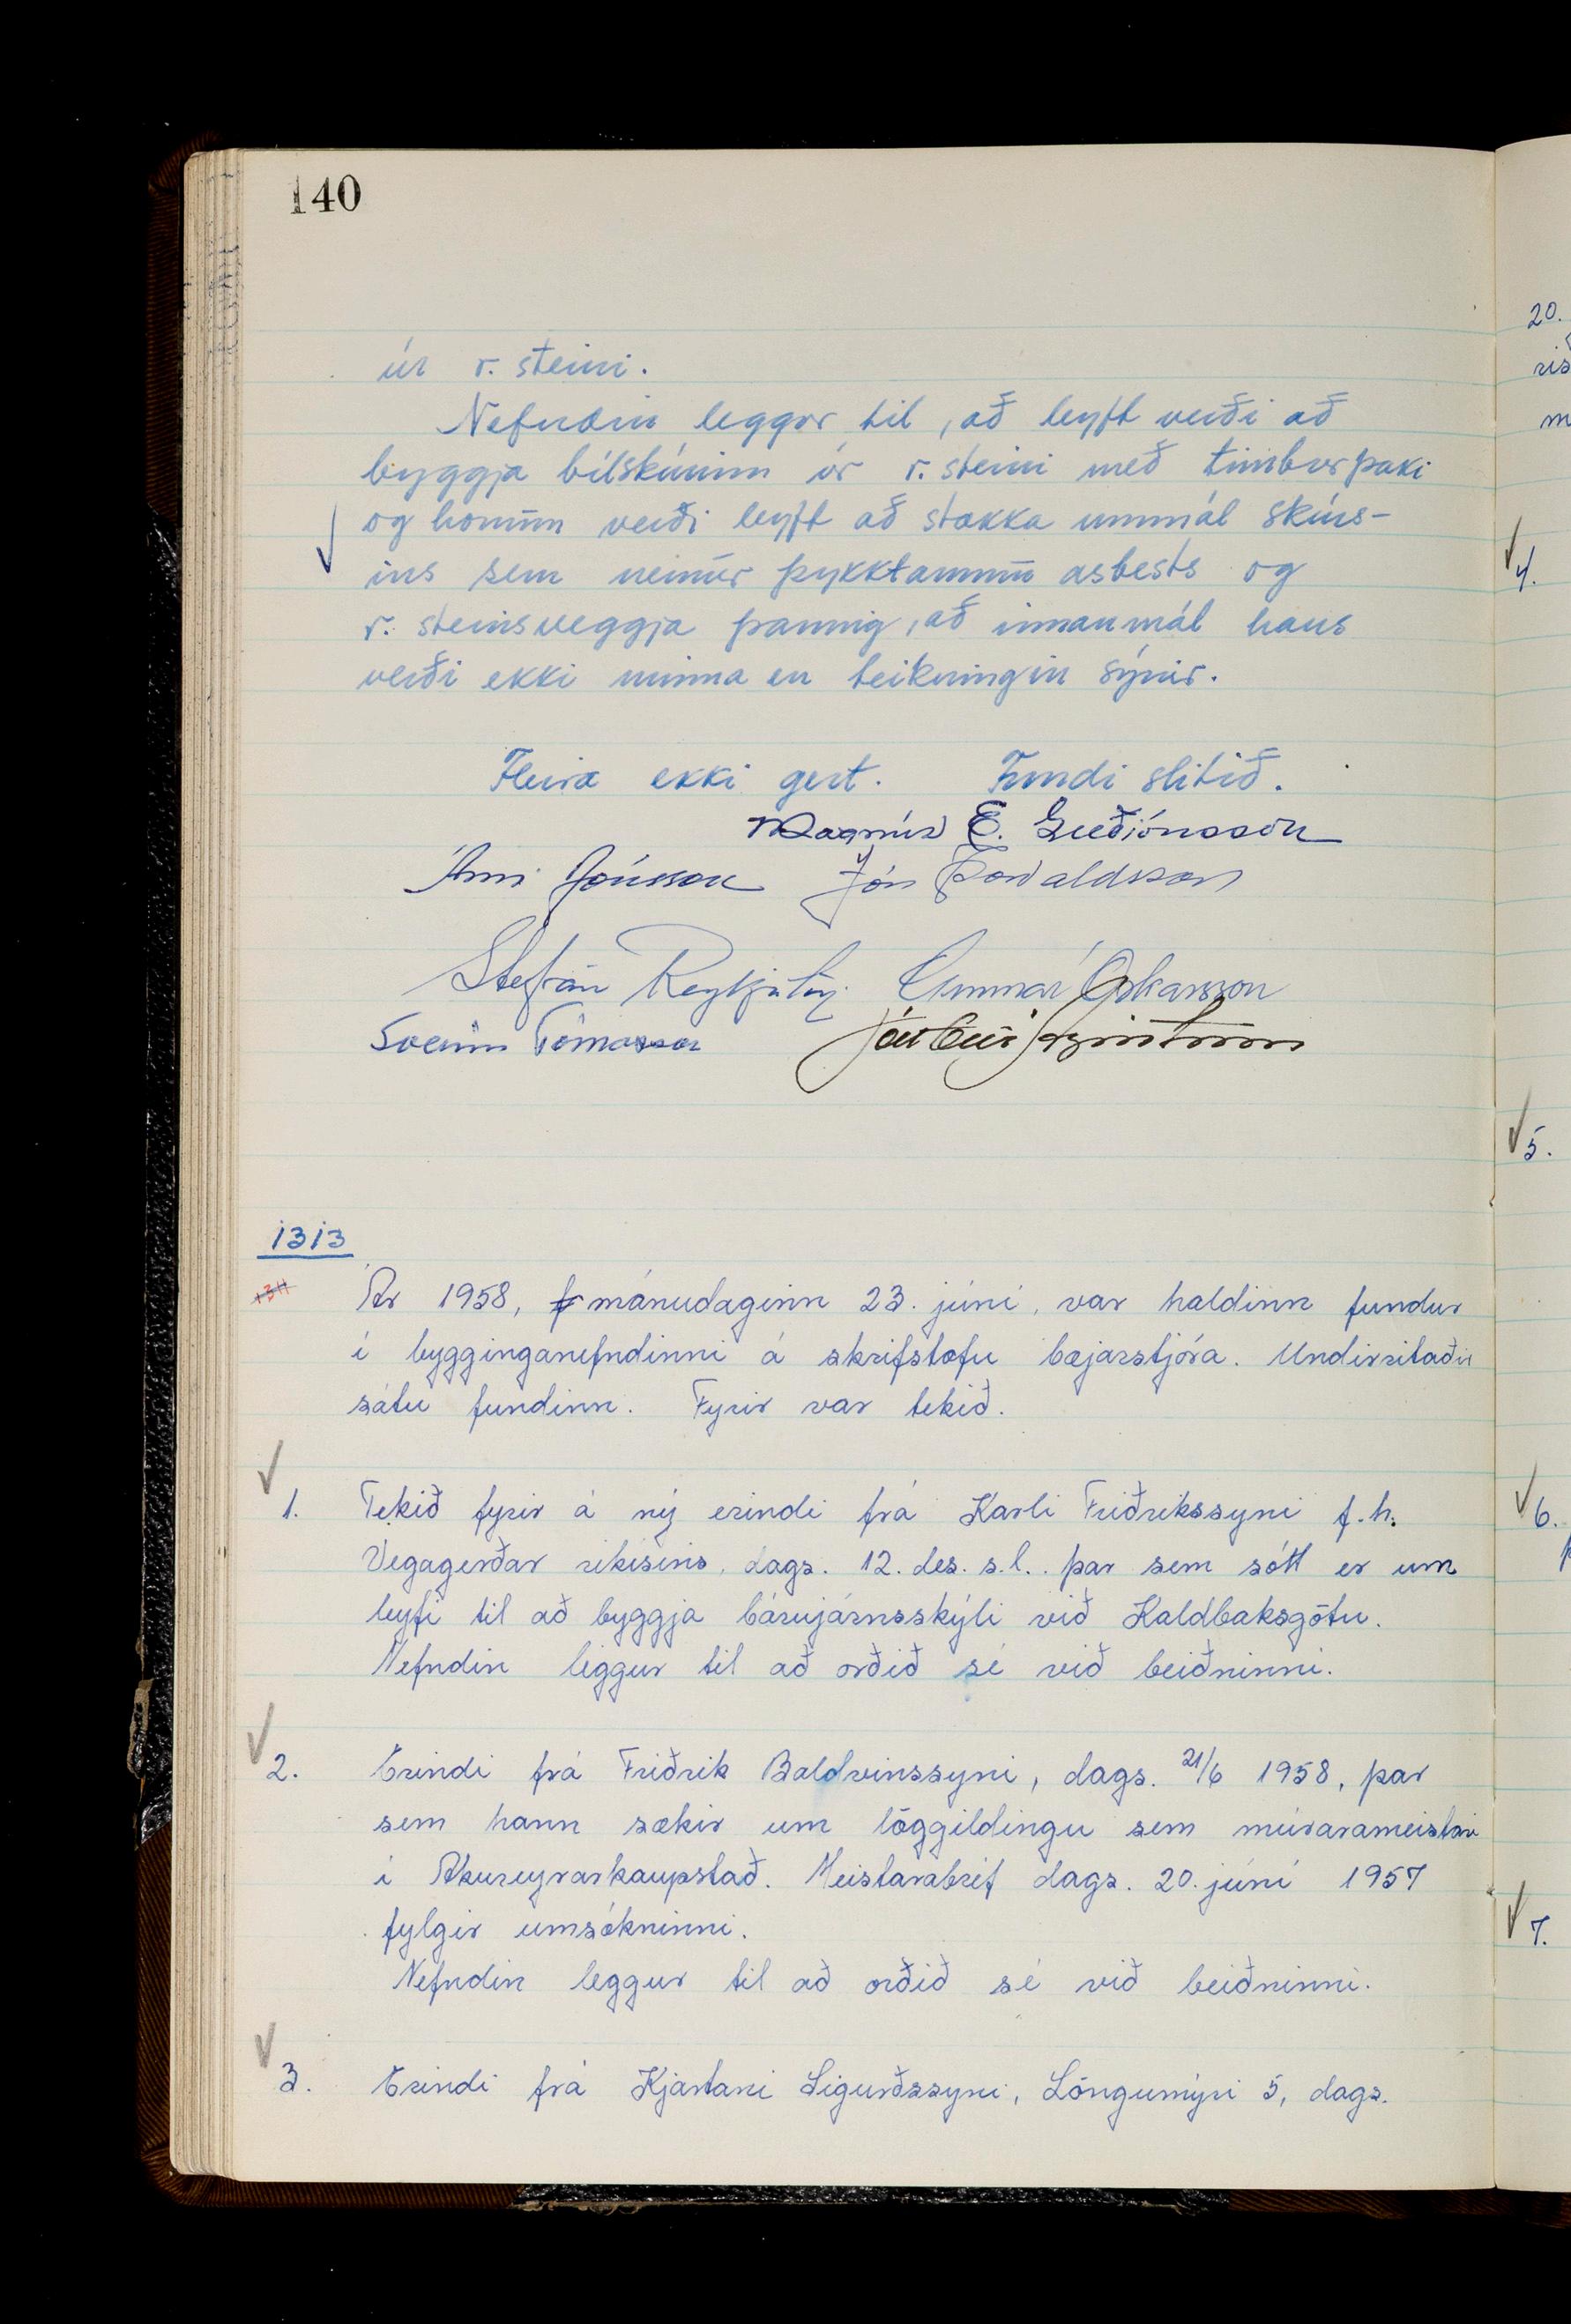 140
úr r. steini.
Nefndin leggur til, að leyft verði að
byggja bílskúrinn úr r. steini með timburþaki
og honum verði leyft að stækka ummál skúrs-
ins sem nemur þykktarmun asbests og
r. steinsveggja þannig, að innanmál hans
verði ekki minna en teikningin sýnir.
Fleira ekki gert. Fundi slitið.
Magnús E. Guðjónsson
Árni Jónsson Jón Þorvaldsson
Stefán Reykjalín Gunnar Óskarsson
Sveinn Tómasson
1313
Ár 1958, mánudaginn 23. júní, var haldinn fundur
í bygginganefndinni á skrifstofu bæjarstjóra. Undirritaðir
sátu fundinn. Fyrir var tekið.
1. Tekið fyrir á ný erindi frá Karli Friðrikssyni f.h.
Vegagerðar ríkisins, dags. 12. des. s.l. þar sem sótt er um
leyfi til að byggja bárujárnsskýli við Kaldbaksgötu.
Nefndin leggur til að orðið sé við beiðninni.
2. Erindi frá Friðrik Baldvinssyni, dags. 21/6 1958, þar
sem hann sækir um löggildingu sem múrarameistari
í Akureyrarkaupstað. Meistarabréf dags. 20. júní 1957
fylgir umsókninni.
Nefndin leggur til að orðið sé við beiðninni.
3. Erindi frá Kjartani Sigurðssyni, Löngumýri 5, dags.
20.
4.
5.
6.
7.